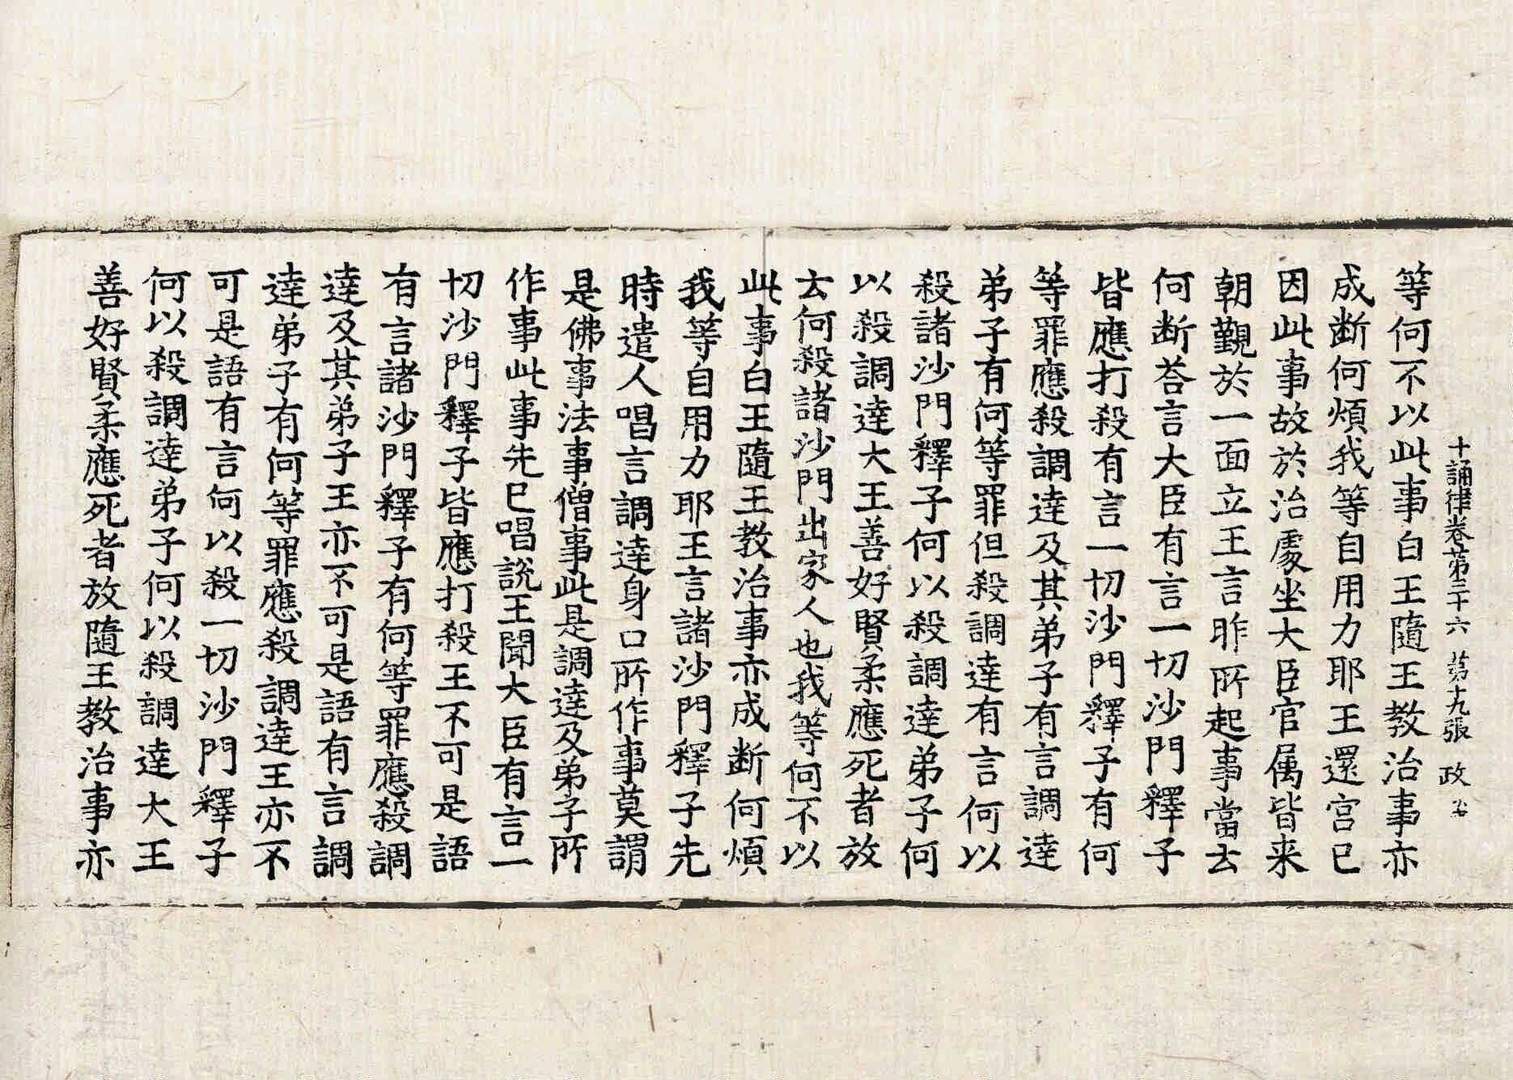 十誦律卷第三十六　第十九張　政
等何不以此事白王隨王教治事亦
成断何煩我等自用力耶王還宮已
因此事故於治處坐大臣官属皆来
朝覲於一面立王言昨所起事當去
何断荅言大臣有言一切沙門釋子
皆應打殺有言一切沙門釋子有何
等罪應殺調達及其弟子有言調達
弟子有何等罪但殺調達有言何以
殺諸沙門釋子何以殺調達弟子何
以殺調達大王善好賢柔應死者放
去何殺諸沙門出家人也我等何不以
此事白王隨王教治事亦成断何煩
我等自用力耶王言諸沙門釋子先
時遣人唱言調達身口所作事莫謂
是佛事法事僧事此是調達及弟子所
作事此事先已唱說王聞大臣有言一
切沙門釋子皆應打殺王不可是語
有言諸沙門釋子有何等罪應殺調
達及其弟子王亦不可是語有言調
達弟子有何等罪應殺調達王亦不
可是語有言何以殺一切沙門釋子
何以殺調達弟子何以殺調達大王
善好賢柔應死者放隨王教治事亦